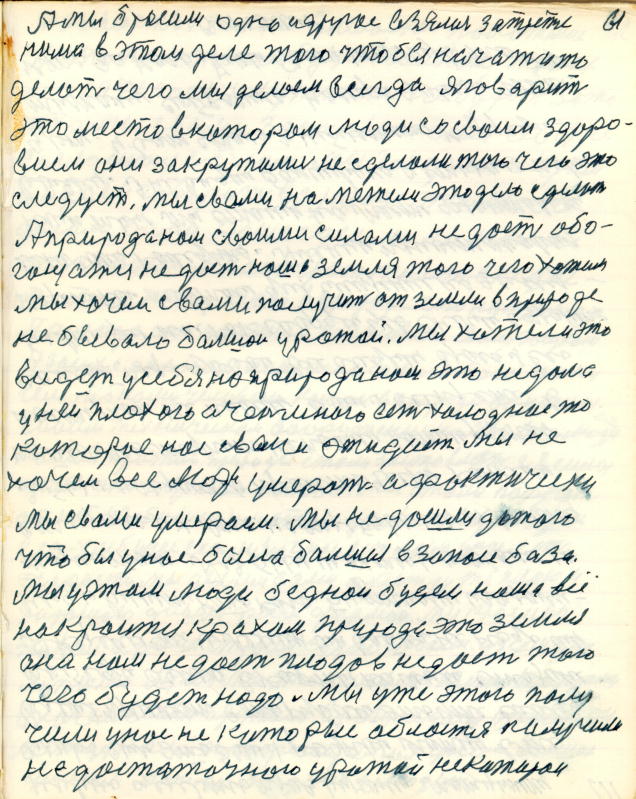 А мы бросили одно а другое взялися за трете 61
нима в этом деле того чтобы начати то
делат чего мы делаем всегда я говарит
это место в котором люди со своим здоро-
вием они закрутили не сделали того чего это
следует, мы с вами наметели это дело сделат
А природа нам своими силами не дает обо-
гощати не дает наша земля того чего хотим
мы хочем с вами получит от земли в природе
не бывало балшои урожай. Мы хотели это
видет у себя но природа нам это не дала
у ней плохого а чего много ест холодное то
которое нас с вами ожидает мы не
хочем все люди умерат а фактически
мы с вами умераем. Мы не дошли до того
чтобы у нас была балшая в запасе база.
Мы у этом люди беднои будем наша всё
накроится крахом природа это земля
она нам не дает плодов не дает того
чего будет надо. Мы уже этого полу
чили у нас не которые областя получили
недостаточного урожай некоторои